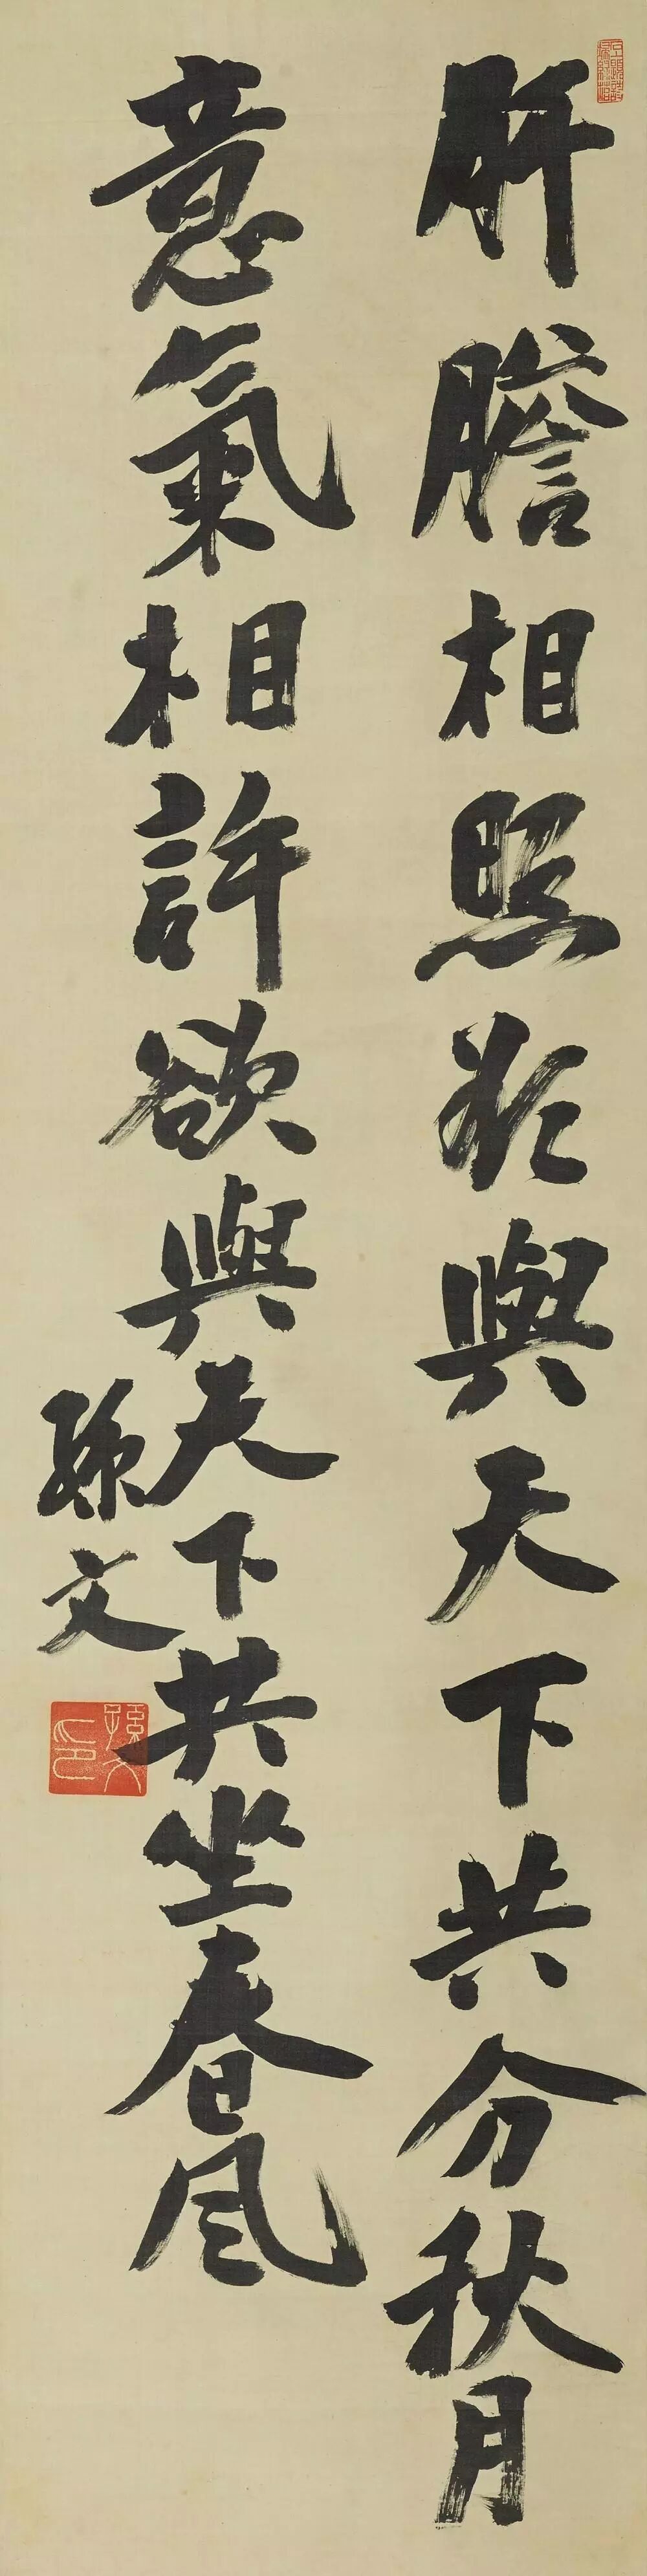 肝膽相照欲與天下共分秋月
意氣相許欲與天下共坐春風
孫文
孫文印